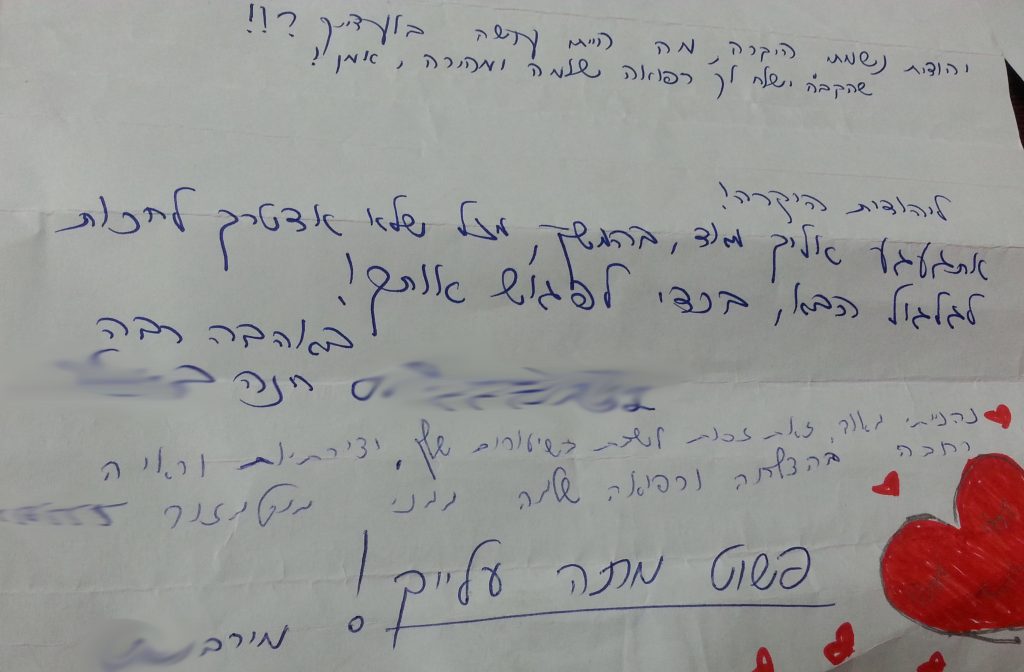 יהודית נשמתי היקרה, מה הייתי עושה בלעדייך ?!!
שהקב"ה ישלח לך רפואה שלמה ומהירה, אמן !
ליהודית היקרה!
אתגעגע אליך מאוד, בהמשך, מזל שלא אצטרך לחכות
לגלגול הבא, בכדי לפגוש אותך!
באהבה רבה
חנה
נהנייתי מאוד, זאת זכות לשבת בשיעורים שלך, יצירתיות וראיה
רחבה בהצלחה ורפואה שלמה ממני
פשוט מתה עלייך !
מירב